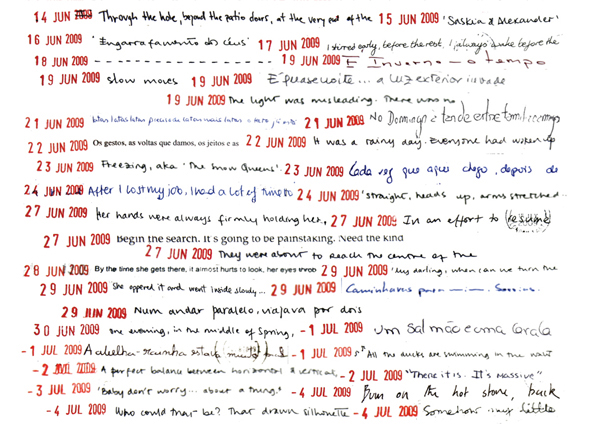 14 JUN 2009 Through the hole, beyond the patio doors, at the very end of the 15 JUN 2009 'Saskia & Alexander'
16 JUN 2009 'Engarrafamento dos céus' 17 JUN 2009 I stirred early, before the rest. I always wake before the
18 JUN 2009 - - - - - - - - - - - - - - - - 19 JUN 2009 É Inverno — o tempo
19 JUN 2009 slow moves 19 JUN 2009 É quase noite... a luz exterior invade
19 JUN 2009 The light was misleading. There was no
21 JUN 2009 latas latas latas 21 JUN 2009 No Domingo é tarde
22 JUN 2009 Os gestos, as voltas que damos, os jeitos e as 22 JUN 2009 It was a rainy day. Everyone had woken up
23 JUN 2009 Freezing, aka 'The Snow Queens' 23 JUN 2009 Cada vez que aqui chego, depois de
24 JUN 2009 After I lost my job, I had a lot of time to 24 JUN 2009 'straight, heads up, arms stretched...
27 JUN 2009 Her hands were always firmly holding her, 27 JUN 2009 In an effort to (resume)
27 JUN 2009 Begin the search. It's going to be painstaking. Need the kind
27 JUN 2009 They were about to reach the centre of the
28 JUN 2009 By the time she gets there, it almost hurts to look, her eyes throb 29 JUN 2009 'My darling, when can we turn the
29 JUN 2009 She opened it and went inside slowly... 29 JUN 2009 Caminhavas para
29 JUN 2009 Num andar paralelo, viajava por dois
30 JUN 2009 One evening, in the middle of Spring, - 1 JUL 2009 Um sal mãe e uma
- 1 JUL 2009 A abelha-rainha estava (muito) - 1 JUL 2009 "All the ducks are swimming in the water
- 2 JUL 2009 A perfect balance between horizontal & vertical, - 2 JUL 2009 "There it is. It's massive"
- 3 JUL 2009 'Baby don't worry... about a thing.' - 4 JUL 2009 Burn on the hot stone, back
- 4 JUL 2009 Who could that be? That drawn silhouette - 4 JUL 2009 Somehow my little